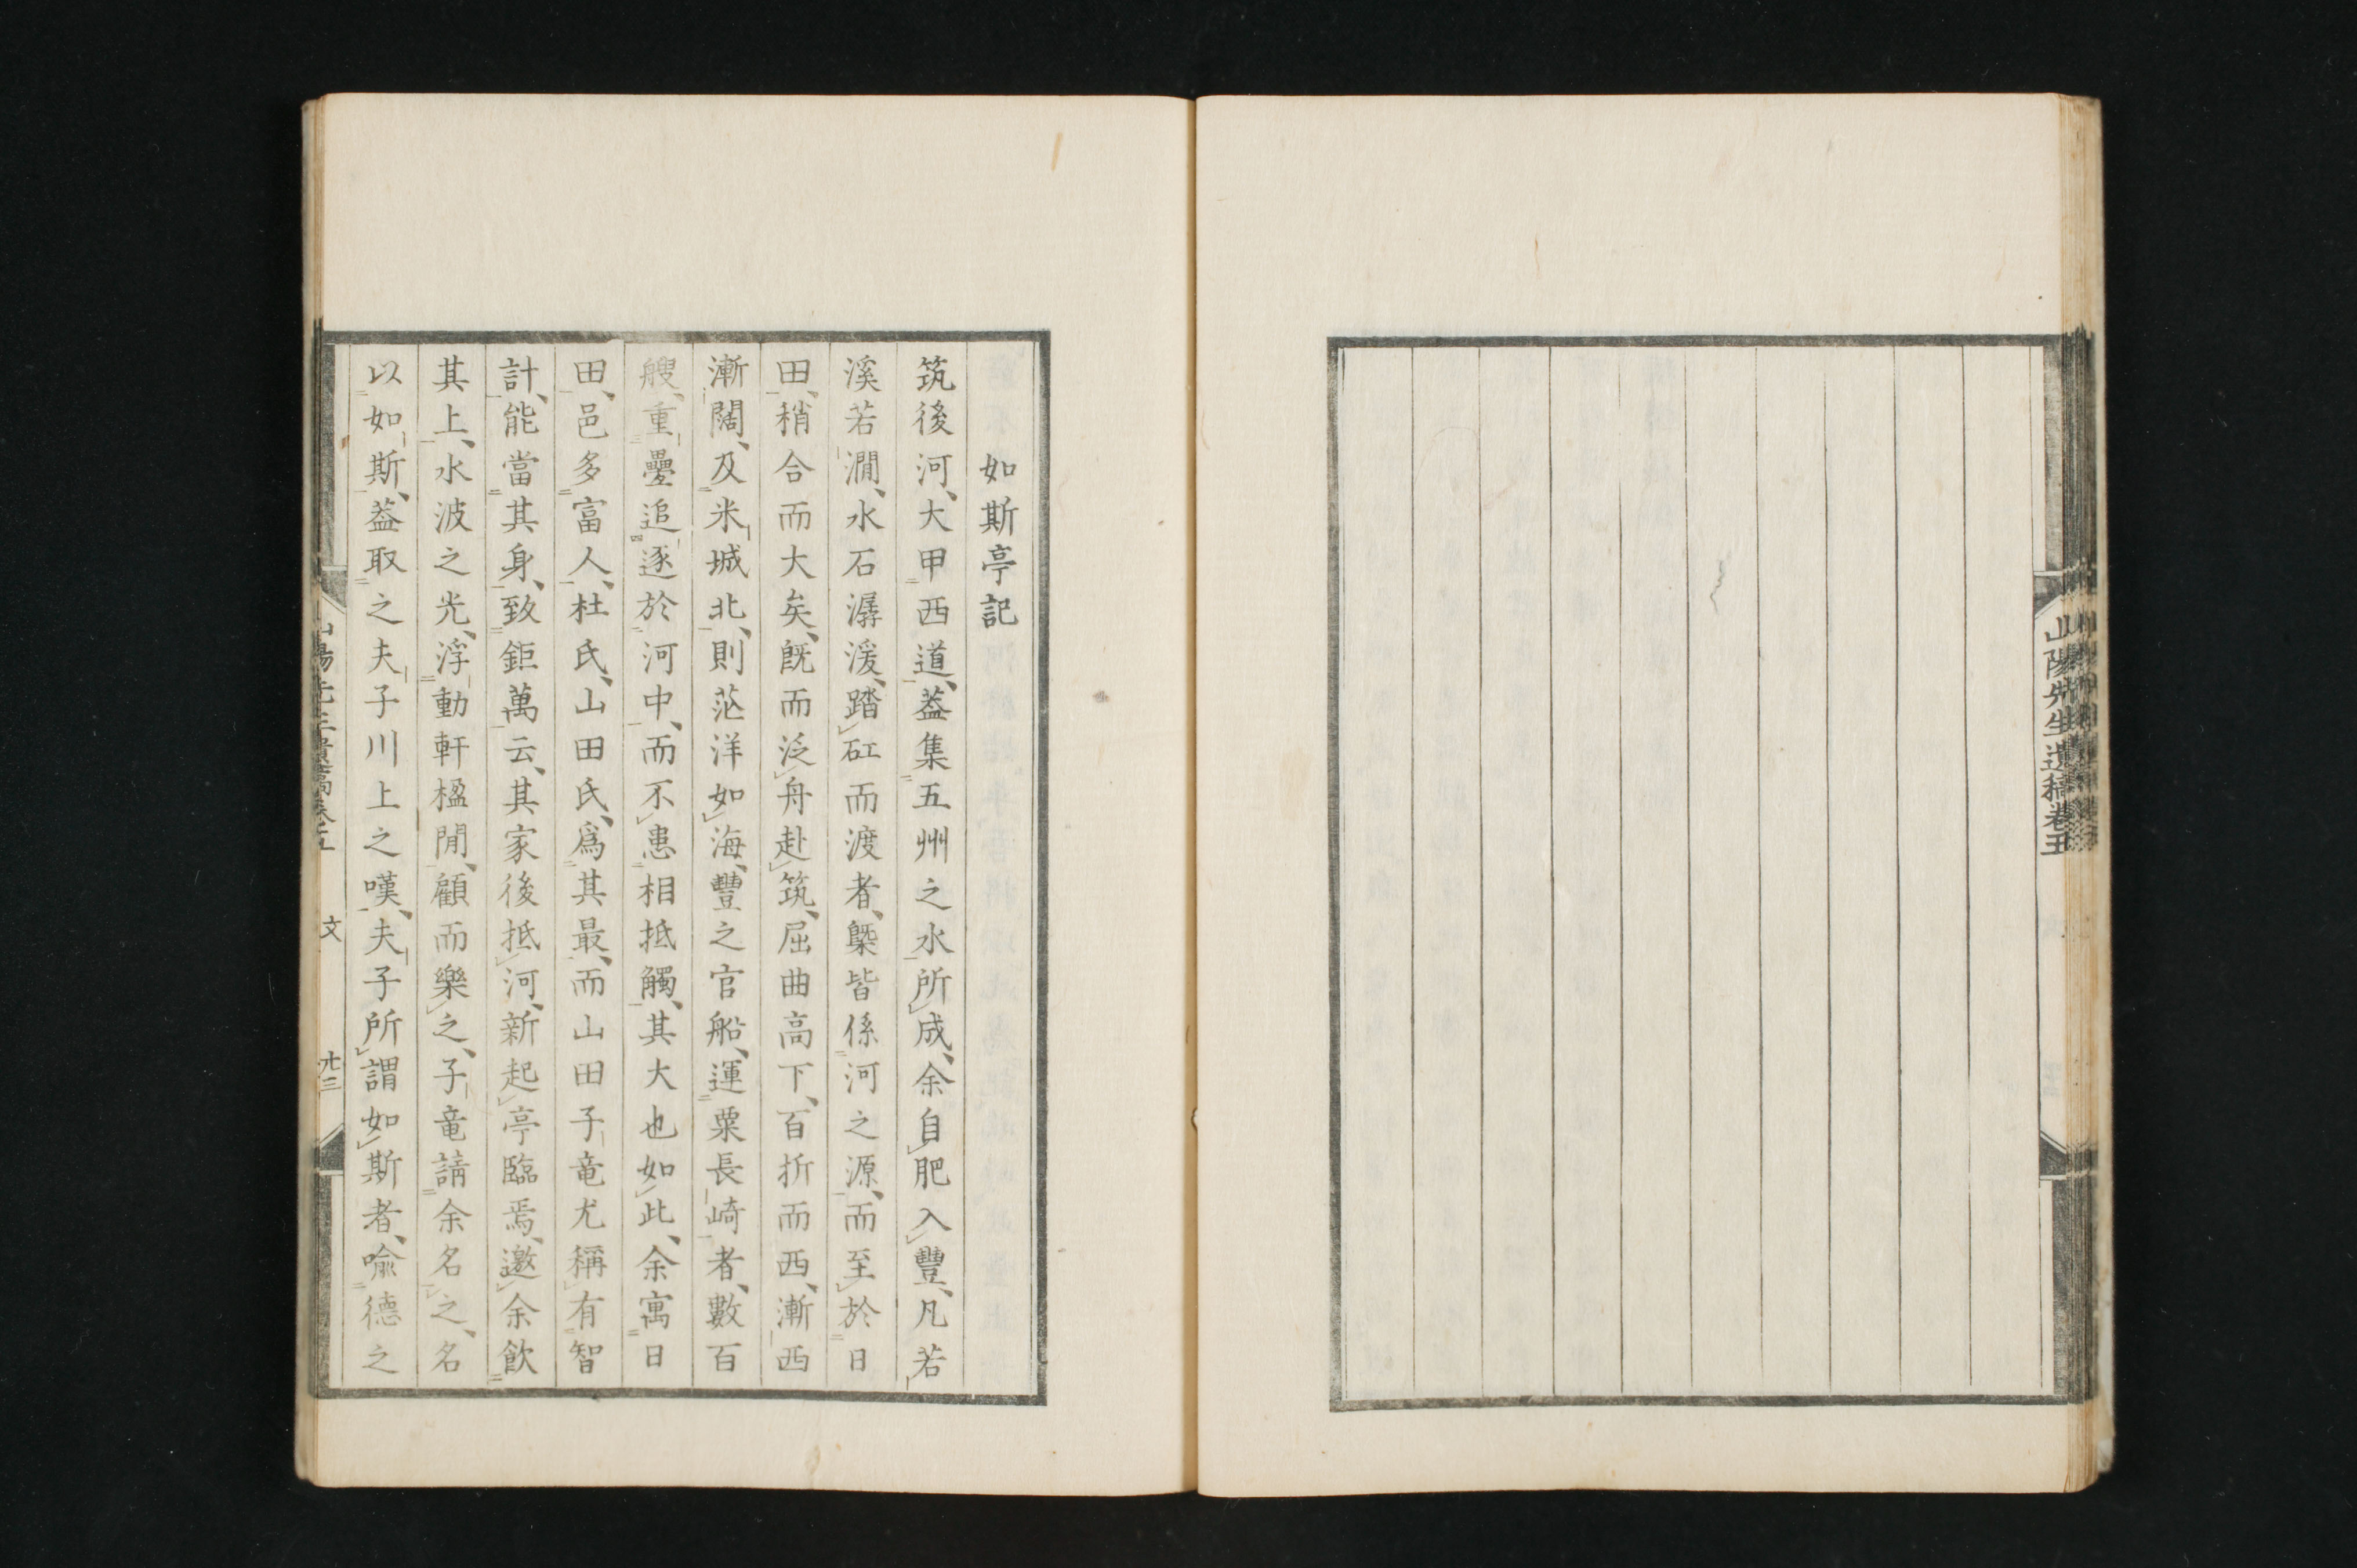 山陽先生遺稿卷五
如斯亭記
筑後河、大甲西道、葢集五州之水所成、余自肥入豐、凡若
溪若澗、水石潺湲、踏矼而渡者、槩皆係河之源、而至於日
田、稍合而大矣、旣而泛舟赴筑、屈曲高下、百折而西、漸西
漸闊、及米城北、則茫洋如海、豐之官船、運粟長崎者、數百
艘、重疊追逐於河中、而不患相抵觸、其大也如此、余寓日
田、邑多富人、杜氏、山田氏、爲其最、而山田子竜尤稱有智
計、能當其身、致鉅萬云、其家後抵河、新起亭臨焉、邀余飲
其上、水波之光、浮動軒楹閒、顧而樂之、子竜請余名之、名
以如斯、葢取之夫子川上之嘆、夫子所謂如斯者、喩德之
文
卅三